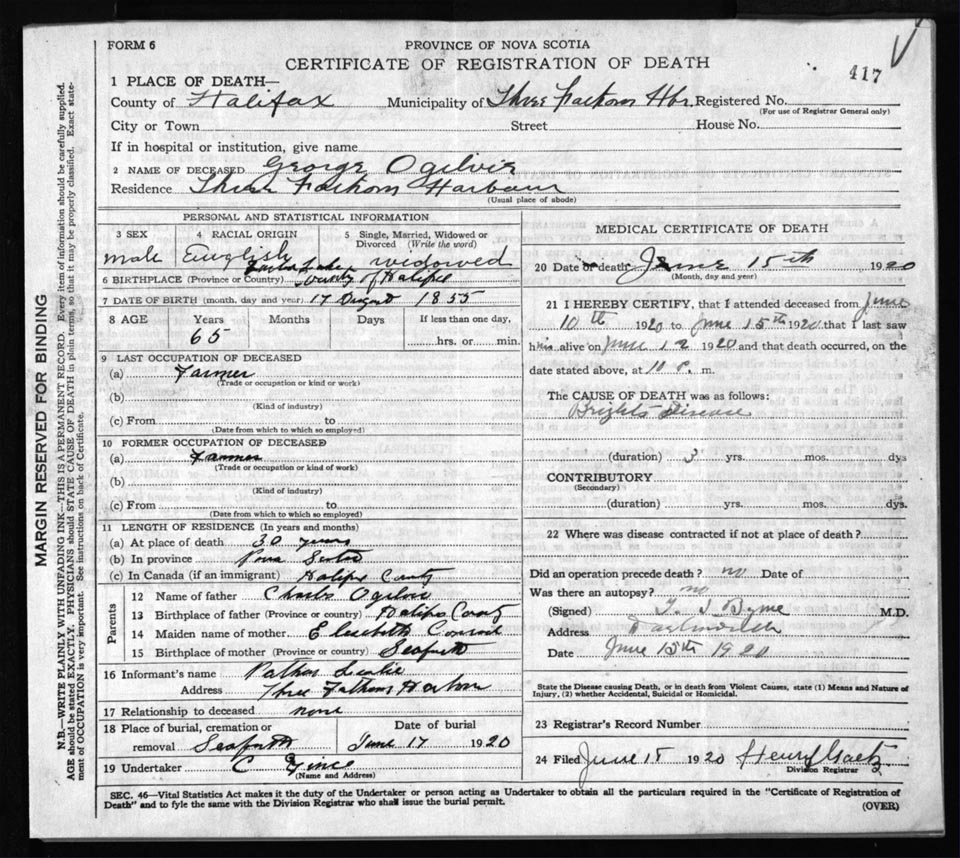 FORM 6
PROVINCE OF NOVA SCOTIA
CERTIFICATE OF REGISTRATION OF DEATH
417
1 PLACE OF DEATH—
County of Halifax Municipality of Three Fathom Hbr. Registered No.
(For use of Registrar General only)
City or Town Street House No.
If in hospital or institution, give name
2 NAME OF DECEASED George Ogilvie
Residence Three Fathom Harbour
(Usual place of abode)
PERSONAL AND STATISTICAL INFORMATION
3 SEX male
4 RACIAL ORIGIN English
5 Single, Married, Widowed or Divorced (Write the word) widowed
6 BIRTHPLACE (Province or Country) County of Halifax
7 DATE OF BIRTH (month, day and year) 17 August 1855
8 AGE Years Months Days If less than one day,
65 hrs. or min.
9 LAST OCCUPATION OF DECEASED
(a) Farmer
(Trade or occupation or kind or work)
(b)
(Kind of industry)
(c) From to
(Date from which to which so employed)
10 FORMER OCCUPATION OF DECEASED
(a) Farmer
(Trade or occupation or kind of work)
(b)
(Kind of industry)
(c) From to
(Date from which to which so employed)
11 LENGTH OF RESIDENCE (In years and months)
(a) At place of death 30 years
(b) In province Nova Scotia
(c) In Canada (if an immigrant) Halifax County
Parents
12 Name of father Charles Ogilvie
13 Birthplace of father (Province or country) Halifax County
14 Maiden name of mother Elisabeth Conrad
15 Birthplace of mother (Province or country) Seaforth
16 Informant's name
Address Three Fathom Harbour
17 Relationship to deceased none
18 Place of burial, cremation or removal Seaforth
Date of burial June 17 1920
19 Undertaker C
(Name and Address)
MEDICAL CERTIFICATE OF DEATH
20 Date of death June 15th 1920
(Month, day and year)
21 I HEREBY CERTIFY, that I attended deceased from June
10th 1920 to June 15th 1920 that I last saw
him alive on June 12 1920 and that death occurred, on the
date stated above, at 10 P. m.
The CAUSE OF DEATH was as follows:
Brights Disease
(duration) 3 yrs. mos. dys
CONTRIBUTORY
(Secondary)
(duration) yrs. mos. dys.
22 Where was disease contracted if not at place of death?
Did an operation precede death? no Date of
Was there an autopsy? no
(Signed) Byrne M.D.
Address Dartmouth
Date June 15th 1920
State the Disease causing Death, or in death from Violent Causes, state (1) Means and Nature of
Injury, (2) whether Accidental, Suicidal or Homicidal.
23 Registrar's Record Number
24 Filed June 15 1920 Henry Gaetz
Division Registrar
SEC. 46—Vital Statistics Act makes it the duty of the Undertaker or person acting as Undertaker to obtain all the particulars required in the "Certificate of Registration of
Death" and to fyle the same with the Division Registrar who shall issue the burial permit.
(OVER)
MARGIN RESERVED FOR BINDING
N.B.—WRITE PLAINLY WITH UNFADING INK—THIS IS A PERMANENT RECORD. Every item of information should be carefully supplied.
AGE should be stated EXACTLY. PHYSICIANS should STATE CAUSE OF DEATH in plain terms, so that it may be properly classified. Exact state-
ment of OCCUPATION is very important. See instructions on back of Certificate.